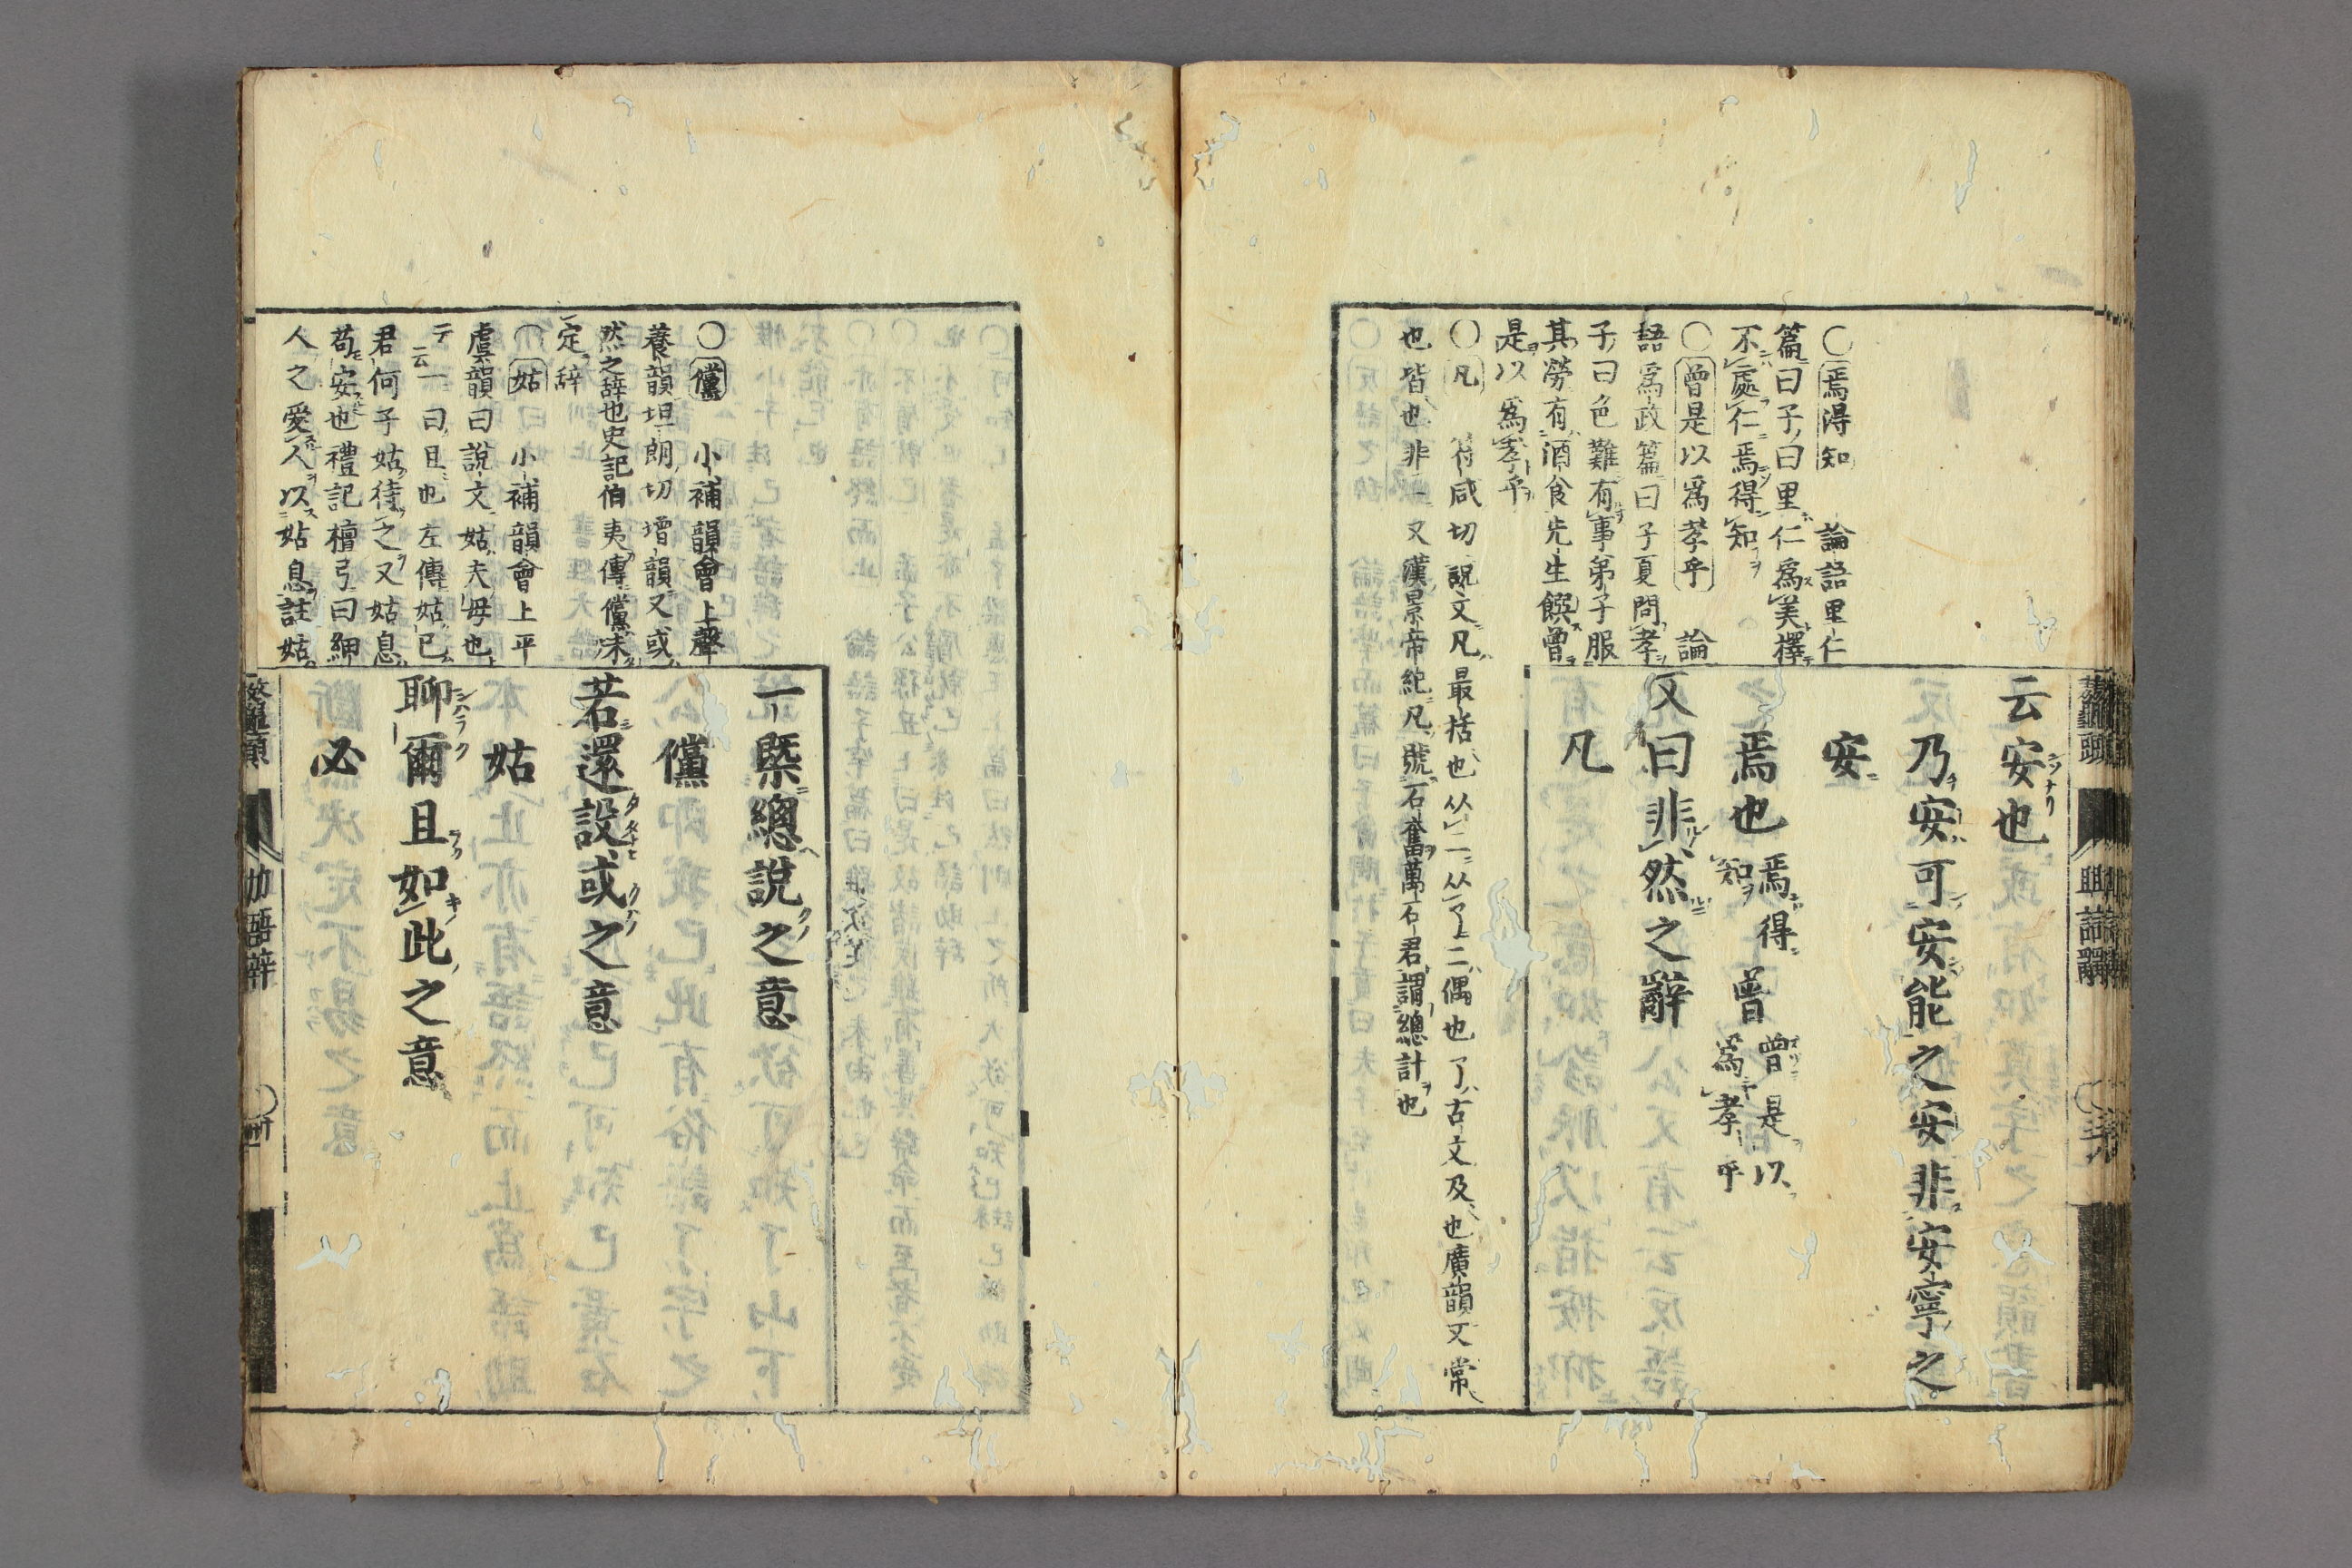 云安也
乃安可安能之安非安寧之
安
焉也
焉得
知
曾
曾是以
爲孝乎
又曰非然之辭
凡
○焉得知 論語里仁
篇曰子曰里仁爲美擇
不處仁焉得知
○曾是以爲孝乎 論
語爲政篇曰子夏問孝
子曰色難有事弟子服
其勞有酒食先生饌曾
是以爲孝乎
○凡 符咸切說文凡最括也从二从了二偶也了古文及也廣韻又常
也皆也非一又漢景帝紀凡號石奮萬石君謂總計也
一槩總說之意
儻
若還設或之意
姑
聊爾且如此之意
必
○儻 小補韻會上聲
養韻坦朗切增韻又或
然之辞也史記伯夷傳儻未
定辞
○姑 小補韻會上平
虞韻曰說文姑夫母也
一曰且也左傳姑已
君何子姑待之又姑息
苟安也禮記檀弓曰細
人之愛人以姑息註姑